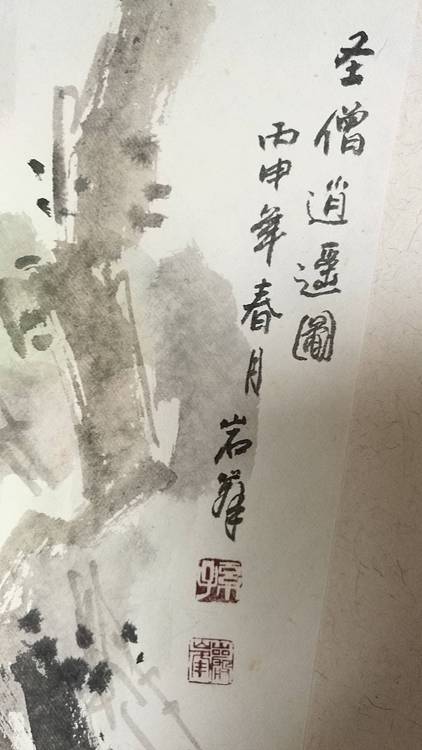 圣僧逍遥圖
丙申年春月岩峯
孫